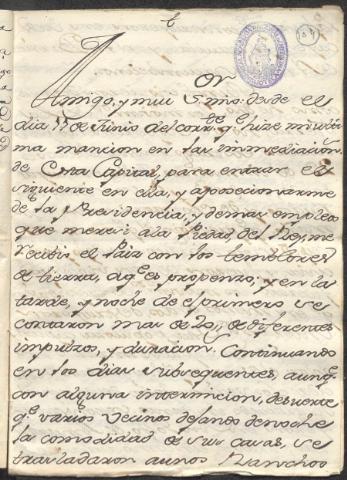 Amigo, y mui S.r mio: desde el
dia 11 de Junio del corr.te q.e hize mi ulti
ma mancion en las inmediacion.s
de Esta Capital, para entrar el
siguiente en ella, y aposecionarme
de la Presidencia, y demas empleos
que mereci ala Piedad del Rey, me
recibió el Pais con los temblores
de tierra, aq.e es propenso; y en la
tarde, y noche de el primero se
contaron mas de 20,, de diferentes
impulsos, y duracion. Continuando
en los dias subsequentes, aunq.e
con alguna intermicion, desuerte
q.e varios Vecinos dejando de noche
la comodidad de sus casas, se
trasladaron aunos Ranchos